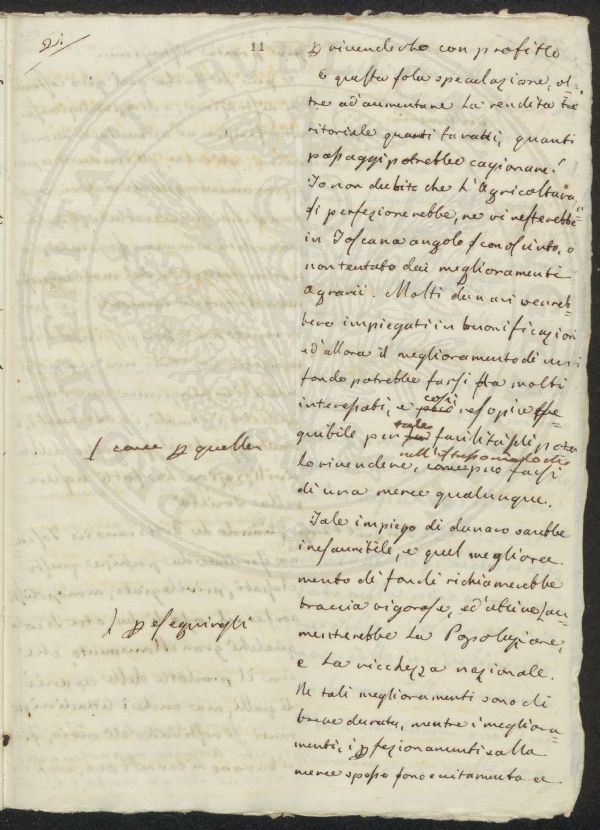 21.
11
p rivenderlo con profitto
e questa sola speculazione, ol=
tre ad'aumentare La rendita Ter
ritoriale quanti travasi, quanti
passaggi potrebbe cagionare!
Io non dubito che L'Agricoltura
si perfezionerebbe, ne vi resterebbe
in Toscana angolo sconosciuto, o
non tentato dai miglioramenti
Agrarii. Molti danari verreb=
bero impiegati in buonificazioni
ed'allora il miglioramento di un
fondo potrebbe farsi da molti
interessati, e così reso più ese
guibile per tale facilità di poter
nell'istesso modo che
lo rivendere, come può farsi
di una merce qualunque.
Tale impiego di danaro sarebbe
inesauribile, e quel megliora
mento di fondi richiamerebbe
braccia vigorose, ed'attive, au
menterebbe La Popolazione,
e La ricchezza nazionale.
Ne tali miglioramenti sono di
breve durata, mentre i megliora=
menti, i pfezionamenti alla
merce spesse sono
/ come p quella
/ p eseguirgli